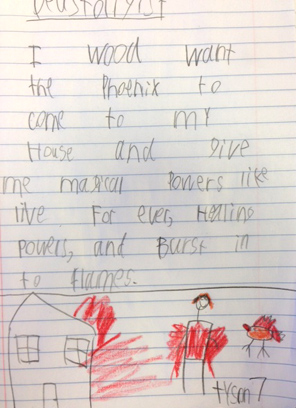 I wood want
the Phoenix to
come to my
House and give
me magical Powers like
live For ever, Healing
Powers, and Burst in
to flames.
tyson 7